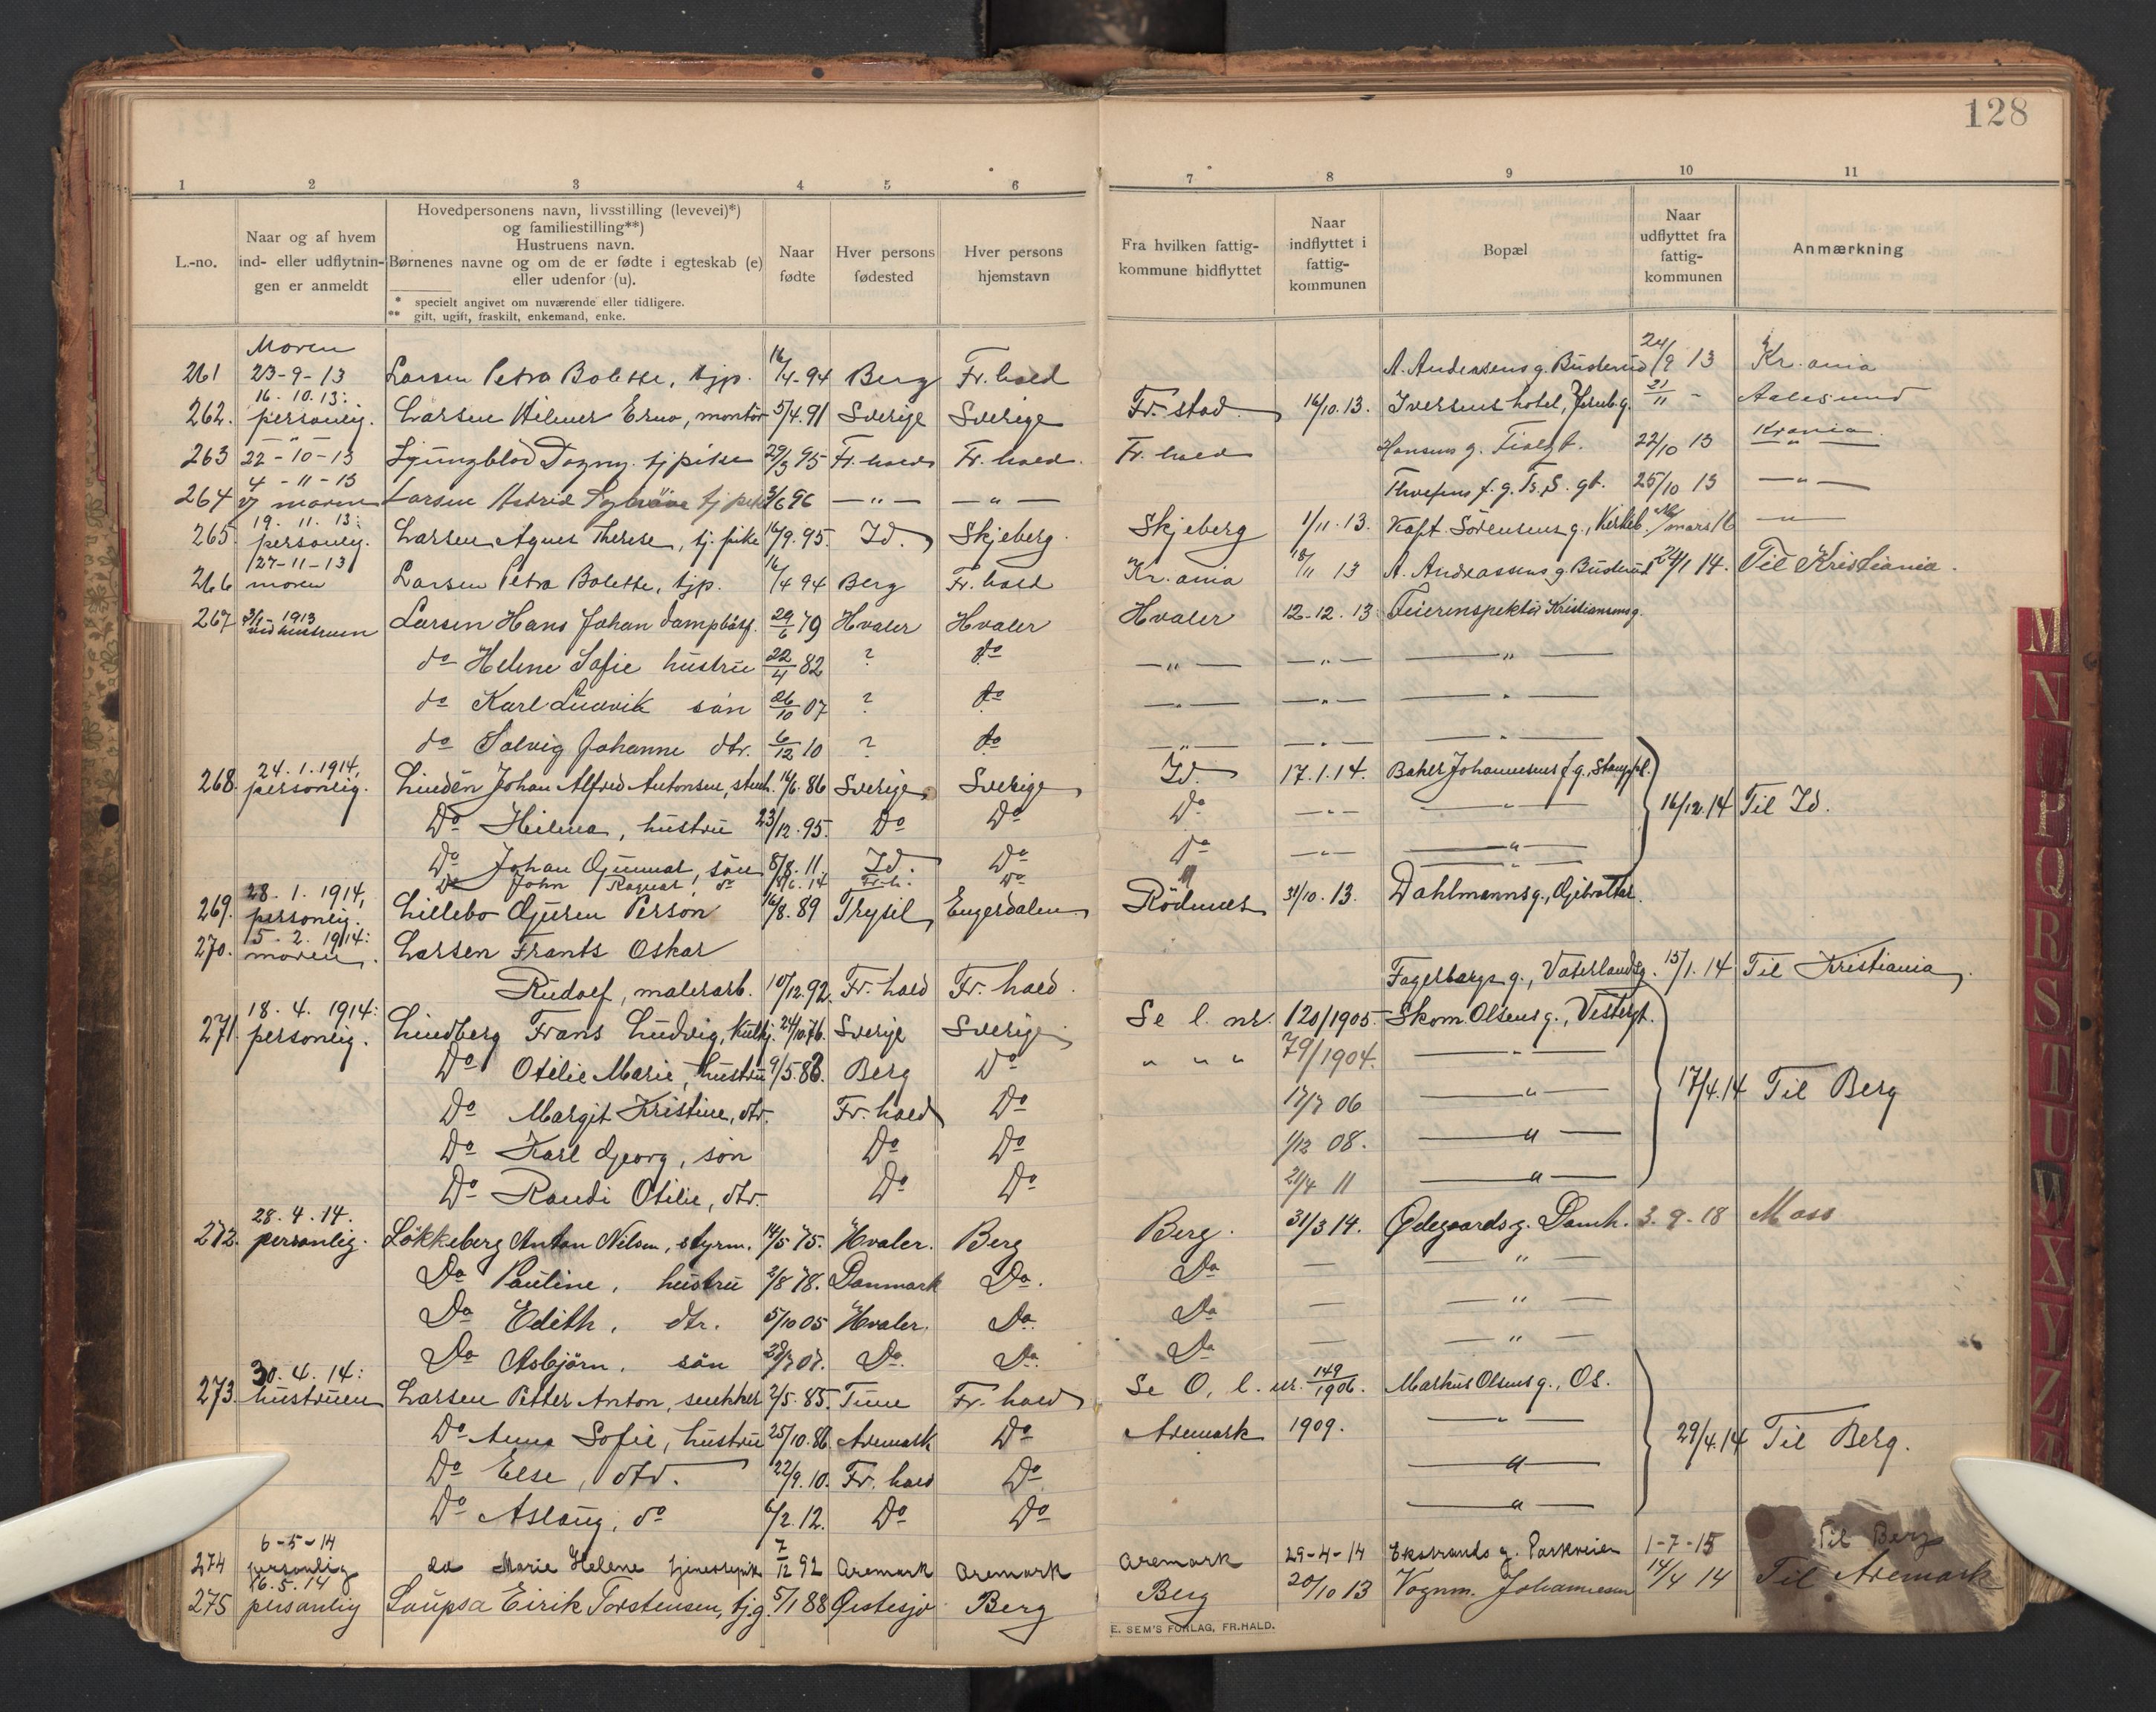 128
1 2 3 4 5 6 7 8 9 10 11
L.-no.
Naar og af hvem ind- eller udflytningen er anmeldt
Hovedpersonens navn, livsstilling (levevei)*) og familiestilling**)
Hustruens navn.
Børnenes navne og om de er fødte i egteskab (e) eller udenfor (u).
* specielt angivet om nuværende eller tidligere.
** gift, ugift, fraskilt, enkemand, enke.
Naar fødte
Hver persons fødested
Hver persons hjemstavn
Fra hvilken fattigkommune hidflyttet
Naar indflyttet i fattigkommunen
Bopæl
Naar udflyttet fra fattigkommunen
Anmærkning
261 Moren 23-9-13 Larsen Petra Bolette, tjp. 16/4-94 Berg Fr.hald A. Andersens g. Büsterud 24/9 13 Kr.ania
262. 16.10.13: personlig. Larsen Hilmer Erno, montör 5/4.91 Sverige Sverige Fr.stad 16/10.13. Iversens hotel, Jernb.g. 21/11 - Aalesund
263 22-10-13 Ljungblod Dagny. tjpike 29/3 95 Fr.hald Fr.hald. Fr.hald Hansens g. 22/10 13 Krania
264 4-11-13 v/ moren Larsen Astrid tjpike 3/6 96 —"— —"— 25/10 13 —"—
265. 19.11.13: personlig. Larsen Agnes Therese, tj.pike 16/9.95. Id. Skjeberg. Skjeberg 1/11.13. Kapt. Sörensens g., Kirkeb. mars 16 —"—
266 27-11-13 moren Larsen Petra Bolette, tjp. 16/4 94 Berg Fr.hald Kr.ania 18/11 13 A. Andreassens g. Büsterud 24/1 14. Til Kristiania.
267 31/1-1913 ved hustruen Larsen Hans Johan dampbåtf. 29/6 79 Hvaler Hvaler Hvaler 12-12.13 Feierinspektör Kristiansens g.
do Helene Sofie hustru 22/4 82 ? do —"— —"— —"—
do Karl Ludvik sön 26/10 07 ? do —"— —"— —"—
do Solvig Johanne dtr. 6/12 10 ? do —"— —"— —"—
268. 24.1.1914, personlig. Lindén Johan Alfred Antonsen, stenh. 16/6.86 Sverige Sverige Id. 17.1.14. Baker Johannesens f.g., Stamppl.
Do Hilma, hustru 23/12.95. Do Do Do —"— —"— 16/12.14 Til Id.
Do Johan Gunnar, sön 8/8.11. Id. Do Do —"— —"—
Do John Ragnar, do /6.14 Fr.h. Do " —"—
269. 28.1.1914, personlig. Lillebo Gjuren Person 16/8.89 Trysil Engerdalen Rödenes 31/10.13. Dahlmanns g., Gibraltar.
270. 5.2.1914: moren. Larsen Frants Oskar
Rudolf, malerarb. 10/12.92. Fr.hald Fr.hald. Fagerbergs g., Vaterlandsg. 15/1.14 Til Kristiania.
271. 18.4.1914: personlig. Lindberg Frans Ludvig, kulkj. 24/10.76. Sverige Sverige Se l.nr. 120/1905. Skom. Olsens g., Vestergt.
Do Otilie Marie, hustru 9/5.88. Berg Do " " " 79/1904. —"—
Do Margit Kristine, dtr. Fr.hald Do 17/7 06 —"— 17/4.14 Til Berg
Do Karl Georg, sön Do Do 1/12 08. —"—
Do Randi Otilie, dtr. Do Do 21/4 11 —"—
272. 28.4.14. personlig. Lökkeberg Anton Nilsen, styrm. 14/5 75. Hvaler. Berg Berg. 31/3 14. Ødegaards g. Damh. 3.9-18 Moss
Do Pauline, hustru 2/8 78. Danmark Do. Do — —"—
Do Edith, dtr. 5/10 05 Hvaler. Do. Do — —"—
Do Asbjörn, sön 28/7 07. Do. Do. Do — —"—
273. 30.4.14: hustruen Larsen Petter Anton, snekker 2/5.85. Tune Fr.hald Se O, l.nr. 149/1906. Markus Olsens g., Os.
Do Anna Sofie, hustru 25/10.86. Aremark Do Aremark 1909. —"— 29/4.14 Til Berg.
Do Else, dtr. 22/9.10. Fr.hald Do —"—
Do Aslaug, do 6/2.12. Do Do —"—
274 6-5-14 personlig do Marie Helene tjenestepik 7/12 92 Aremark Aremark Aremark 29-4-14 Ekstrands g. Parkveien 1-7-15 Til Berg
275 16.5.14 personlig Laupsa Eirik Torstensen, tj.g. 5/1 88 Østesjø Berg Berg 20/10 13 Vognm. Johannesen 14/4 14 Til Aremark
E. SEM'S FORLAG, FR.HALD.
M
N
P
Q
R
S
T
U
W
X
Y
Z